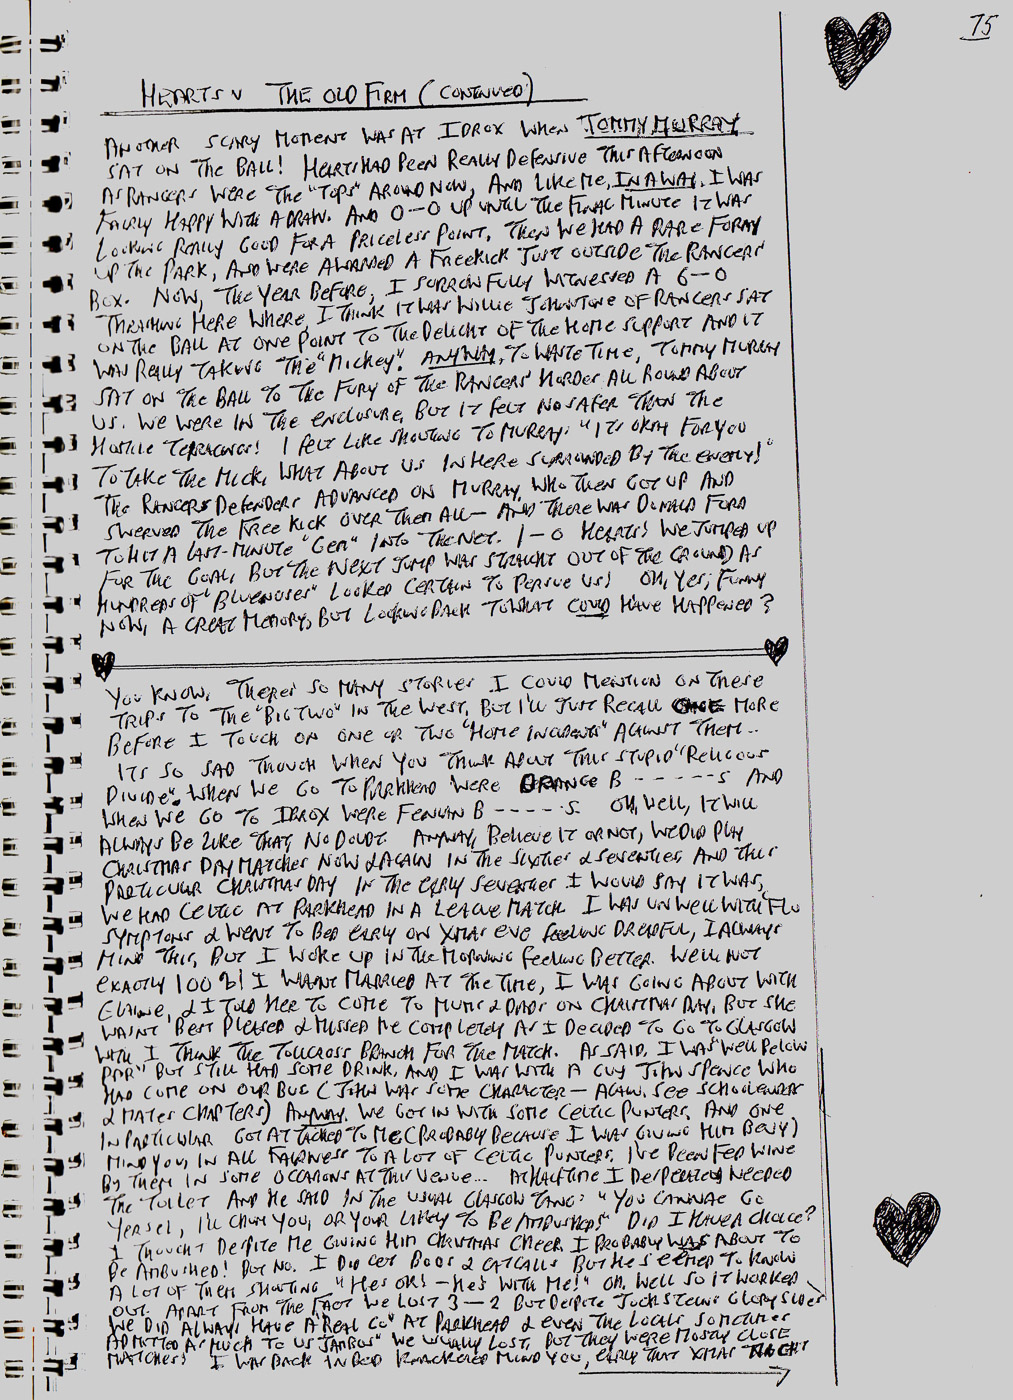 75
HEARTS V THE OLD FIRM (CONTINUED)
ANOTHER SCARY MOMENT WAS AT IBROX WHEN TOMMY MURRAY
SAT ON THE BALL! HEARTS HAD BEEN REALLY DEFENSIVE THIS AFTERNOON
AS RANGERS WERE THE "TOPS" AROUND NOW, AND LIKE ME, IN A WAY, I WAS
FAIRLY HAPPY WITH A DRAW. AND 0-0 UP UNTIL THE FINAL MINUTE IT WAS
LOOKING REALLY GOOD FOR A PRICELESS POINT, THEN WE HAD A RARE FORAY
UP THE PARK, AND WERE AWARDED A FREEKICK JUST OUTSIDE THE RANGERS
BOX. NOW, THE YEAR BEFORE, I SORROWFULLY WITNESSED A 6-0
THRASHING HERE WHERE, I THINK IT WAS WILLIE JOHNSTONE OF RANGERS SAT
ON THE BALL AT ONE POINT TO THE DELIGHT OF THE HOME SUPPORT AND IT
WAS REALLY TAKING THE "MICKEY". ANYWAY, TO WASTE TIME, TOMMY MURRAY
SAT ON THE BALL TO THE FURY OF THE RANGERS' HORDES ALL ROUND ABOUT
US. WE WERE IN THE ENCLOSURE, BUT IT FELT NO SAFER THAN THE
HOSTILE TERRACINGS! I FELT LIKE SHOUTING TO MURRAY: "ITS OKAY FOR YOU
TO TAKE THE MICK, WHAT ABOUT US IN HERE SURROUNDED BY THE ENEMY!"
THE RANGERS DEFENDERS ADVANCED ON MURRAY, WHO THEN GOT UP AND
SWERVED THE FREE KICK OVER THEM ALL- AND THERE WAS DONALD FORD
TO HIT A LAST-MINUTE "GEM" INTO THE NET. 1-0 HEARTS! WE JUMPED UP
FOR THE GOAL, BUT THE NEXT JUMP WAS STRAIGHT OUT OF THE GROUND, AS
HUNDREDS OF "BLUENOSES" LOOKED CERTAIN TO PERSUE US! OH, YES, FUNNY
NOW, A GREAT MEMORY, BUT LOOKING BACK TO WHAT COULD HAVE HAPPENED?
YOU KNOW, THERES SO MANY STORIES I COULD MENTION ON THESE
TRIPS TO THE "BIG TWO" IN THE WEST, BUT I'LL JUST RECALL ONE MORE
BEFORE I TOUCH ON ONE OR TWO "HOME INCIDENTS" AGAINST THEM...
ITS SO SAD THOUGH WHEN YOU THINK ABOUT THIS STUPID "RELIGIOUS
DIVIDE". WHEN WE GO TO PARKHEAD WERE ORANGE B - - - - - - S AND
WHEN WE GO TO IBROX WERE FENIAN B - - - - - S. OH, WELL, IT WILL
ALWAYS BE LIKE THAT NO DOUBT. ANYWAY, BELIEVE IT OR NOT, WE DID PLAY
CHRISTMAS DAY MATCHES NOW & AGAIN IN THE SIXTIES & SEVENTIES, AND THIS
PARTICULAR CHRISTMAS DAY IN THE EARLY SEVENTIES I WOULD SAY IT WAS,
WE HAD CELTIC AT PARKHEAD IN A LEAGUE MATCH. I WAS UNWELL WITH FLU
SYMPTONS & WENT TO BED EARLY ON XMAS EVE FEELING DREADFUL, I ALWAYS
MIND THIS, BUT I WOKE UP IN THE MORNING FEELING BETTER. WELL NOT
EXACTLY 100%! I WASNT MARRIED AT THE TIME, I WAS GOING ABOUT WITH
ELAINE, & I TOLD HER TO COME TO MUMS & DADS ON CHRISTMAS DAY, BUT SHE
WASNT BEST PLEASED & MISSED ME COMPLETELY AS I DECIDED TO GO TO GLASGOW
WITH I THINK THE TOLLCROSS BRANCH FOR THE MATCH. AS SAID, I WAS "WELL BELOW
PAR" BUT STILL HAD SOME DRINK, AND I WAS WITH A GUY JOHN SPENCE WHO
HAD COME ON OUR BUS (JOHN WAS SOME CHARACTER- AGAIN, SEE SCHOOLDAYS
& MATES CHAPTERS) ANYWAY, WE GOT IN WITH SOME CELTIC PUNTERS, AND ONE
IN PARTICULAR GOT ATTACHED TO ME (PROBABLY BECAUSE I WAS GIVING HIM BEVY)
MIND YOU, IN ALL FAIRNESS TO A LOT OF CELTIC PUNTERS, I'VE BEEN FED WINE
BY THEM IN SOME OCCASIONS AT THIS VENUE... AT HALFTIME I DESPERATELY NEEDED
THE TOILET AND HE SAID IN THE USUAL GLASGOW TANG: "YOU CANNAE GO
YERSEL, I'LL CHUM YOU, OR YOUR LIKELY TO BE AMBUSHED!" DID I HAVE A CHOICE?
I THOUGHT DESPITE ME GIVING HIM CHRISTMAS CHEER I PROBABLY WAS ABOUT TO
BE AMBUSHED! BUT NO. I DID GET BOOS & CATCALLS BUT HE SEEMED TO KNOW
A LOT OF THEM SHOUTING "HES OK! - HE'S WITH ME!" OH, WELL SO IT WORKED
OUT. APART FROM THE FACT WE LOST 3-2 BUT DESPITE JOCK STEINS GLORY SIDES
WE DID ALWAYS HAVE A "REAL GO" AT PARKHEAD & EVEN THE LOCALS SOMETIMES
ADMITTED AS MUCH TO US "JAMBOS" WE USUALLY LOST, BUT THEY WERE MOSTLY CLOSE
MATCHES! I WAS BACK IN BED KNACKERED MIND YOU, EARLY THAT XMAS NIGHT